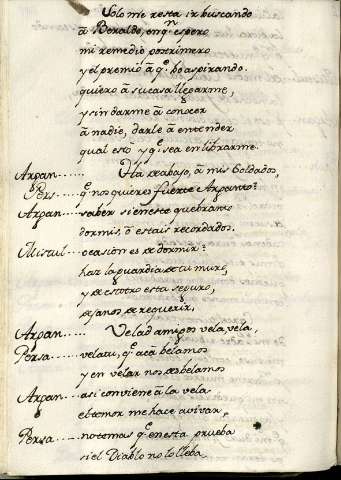 Solo me resta ir buscando
a Beraldo, en qn. espero
mi remedio postrimero
y el premio a q.e ho aspirando.
quiero a su casa llegarme,
y sin darme a conocer
a nadie, darle a entender
qual estô y q.e sea en librarme.
Arpan...... Ha de abajo, a mis Soldados,
Pers... q.e nos quieres fuerte Arpanto?
Arpan... saber si en este quebranto
dormis, ò estais recordados.
Mistul... ocasion es de dormir?
haz la guardia de tu muro,
y de estotro esta seguro,
dejanos de requerir,
Arpan..... Velad amigos vela vela,
Persa...... velatu, q.e acà belamos
y en velar nos desbelamos
Arpan.... asi conviene a la vela
el temor me hace avivar,
Persa..... no temas q.e en esta prueba
si el Diablo no lo lleba